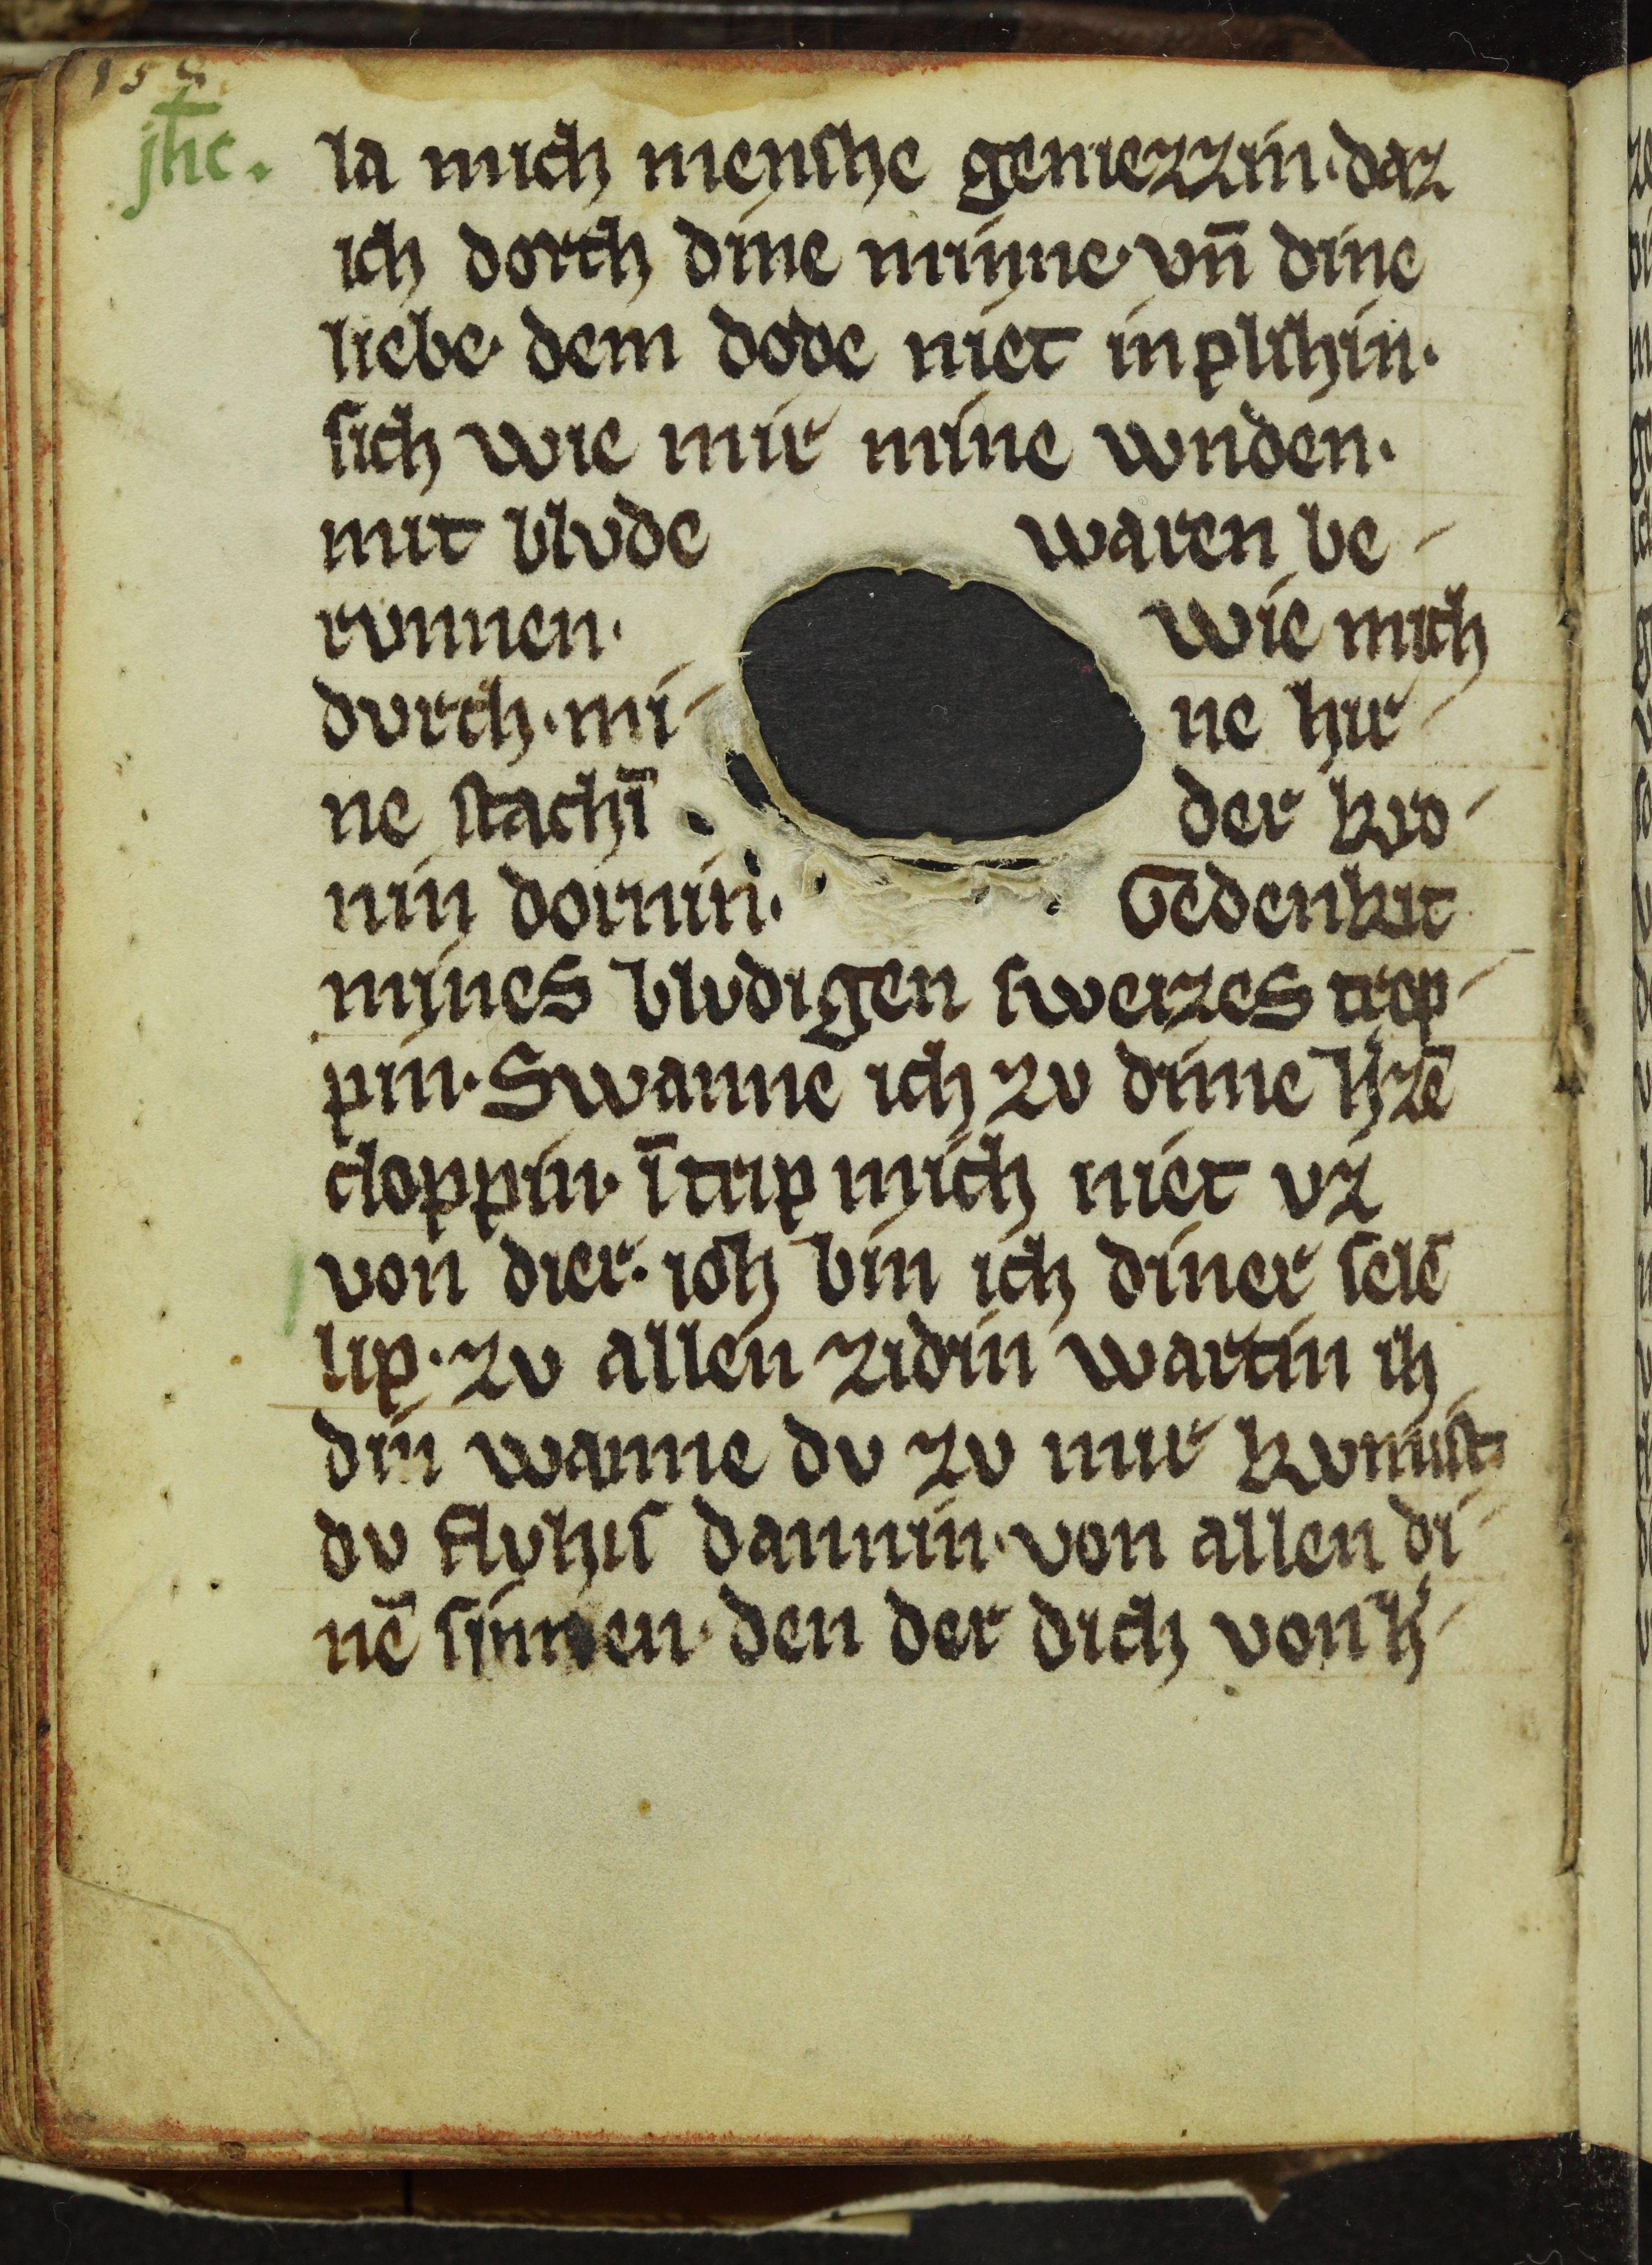 158
jh̄c. la mich menſche geniezzin. daz
ich dorch dine minne. vn̄ dine
liebe. dem dode niet inplihin.
ſich wie mir mine wnden.
mit blvde waren be
rvnnen. wie mich
dvrch. mi ne hir
ne ſtachī der kro
nin dornin. Gedenkit
mines blvdigen ſweizes trop
pin. Swanne ich zv dime h'zē
cloppin. ītrip mich niet vz
von dier. ioh bin ich diner ſelē
lip. zv allen zidin wartin ih
din wanne dv zv mir kvmiſt.
dv flvhis dannin. von allen di
nē ſinnen. den der dich von h'